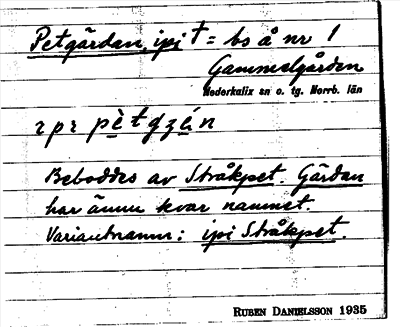 Petgårdan, ipi t = bs å nr 1
Gammelgården
Nederkalix sn o. tg. Norrb. län
ɿpɿ pètgzán
Beboddes av Stråkpet. Gårdan
har ännu kvar namnet.
Variantnamn: ipi Stråkpet.
RUBEN DANIELSSON 1935